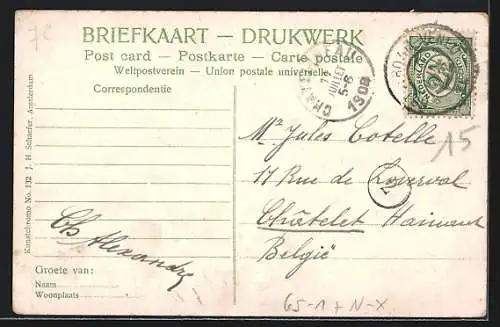 7c
BRIEFKAART — DRUKWERK
Post card — Postkarte — Carte postale
Weltpostverein — Union postale universelle
Correspondentie
JUILLET
5-6
1908
NEDERLAND
15
Mr Jules Cotelle
17 Rue de Loverval
Châtelet Hainaut
België
Ch Alexandre
Groete van:
Naam
Woonplaats
Kunstchromo No. 132 J. H. Schaefer, Amsterdam
GS-1+N-X